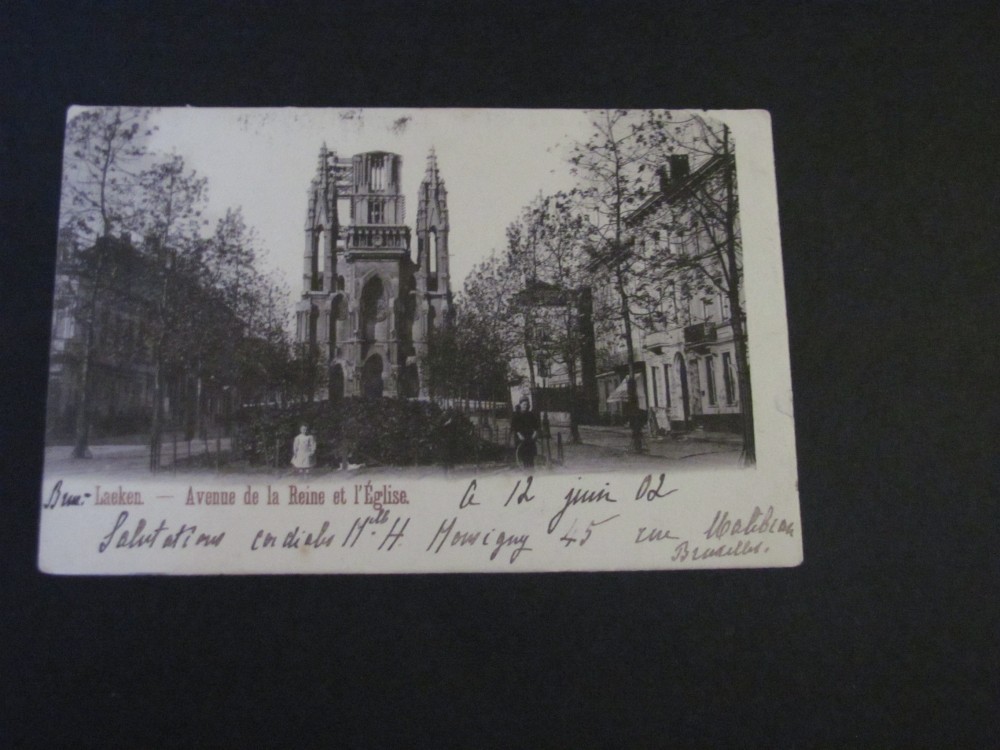 Brux- Laeken. — Avenue de la Reine et l'Église. 12 juin 02
Salutations cordiales Mlle H. Monsigny 45 rue Malibran
Bruxelles.